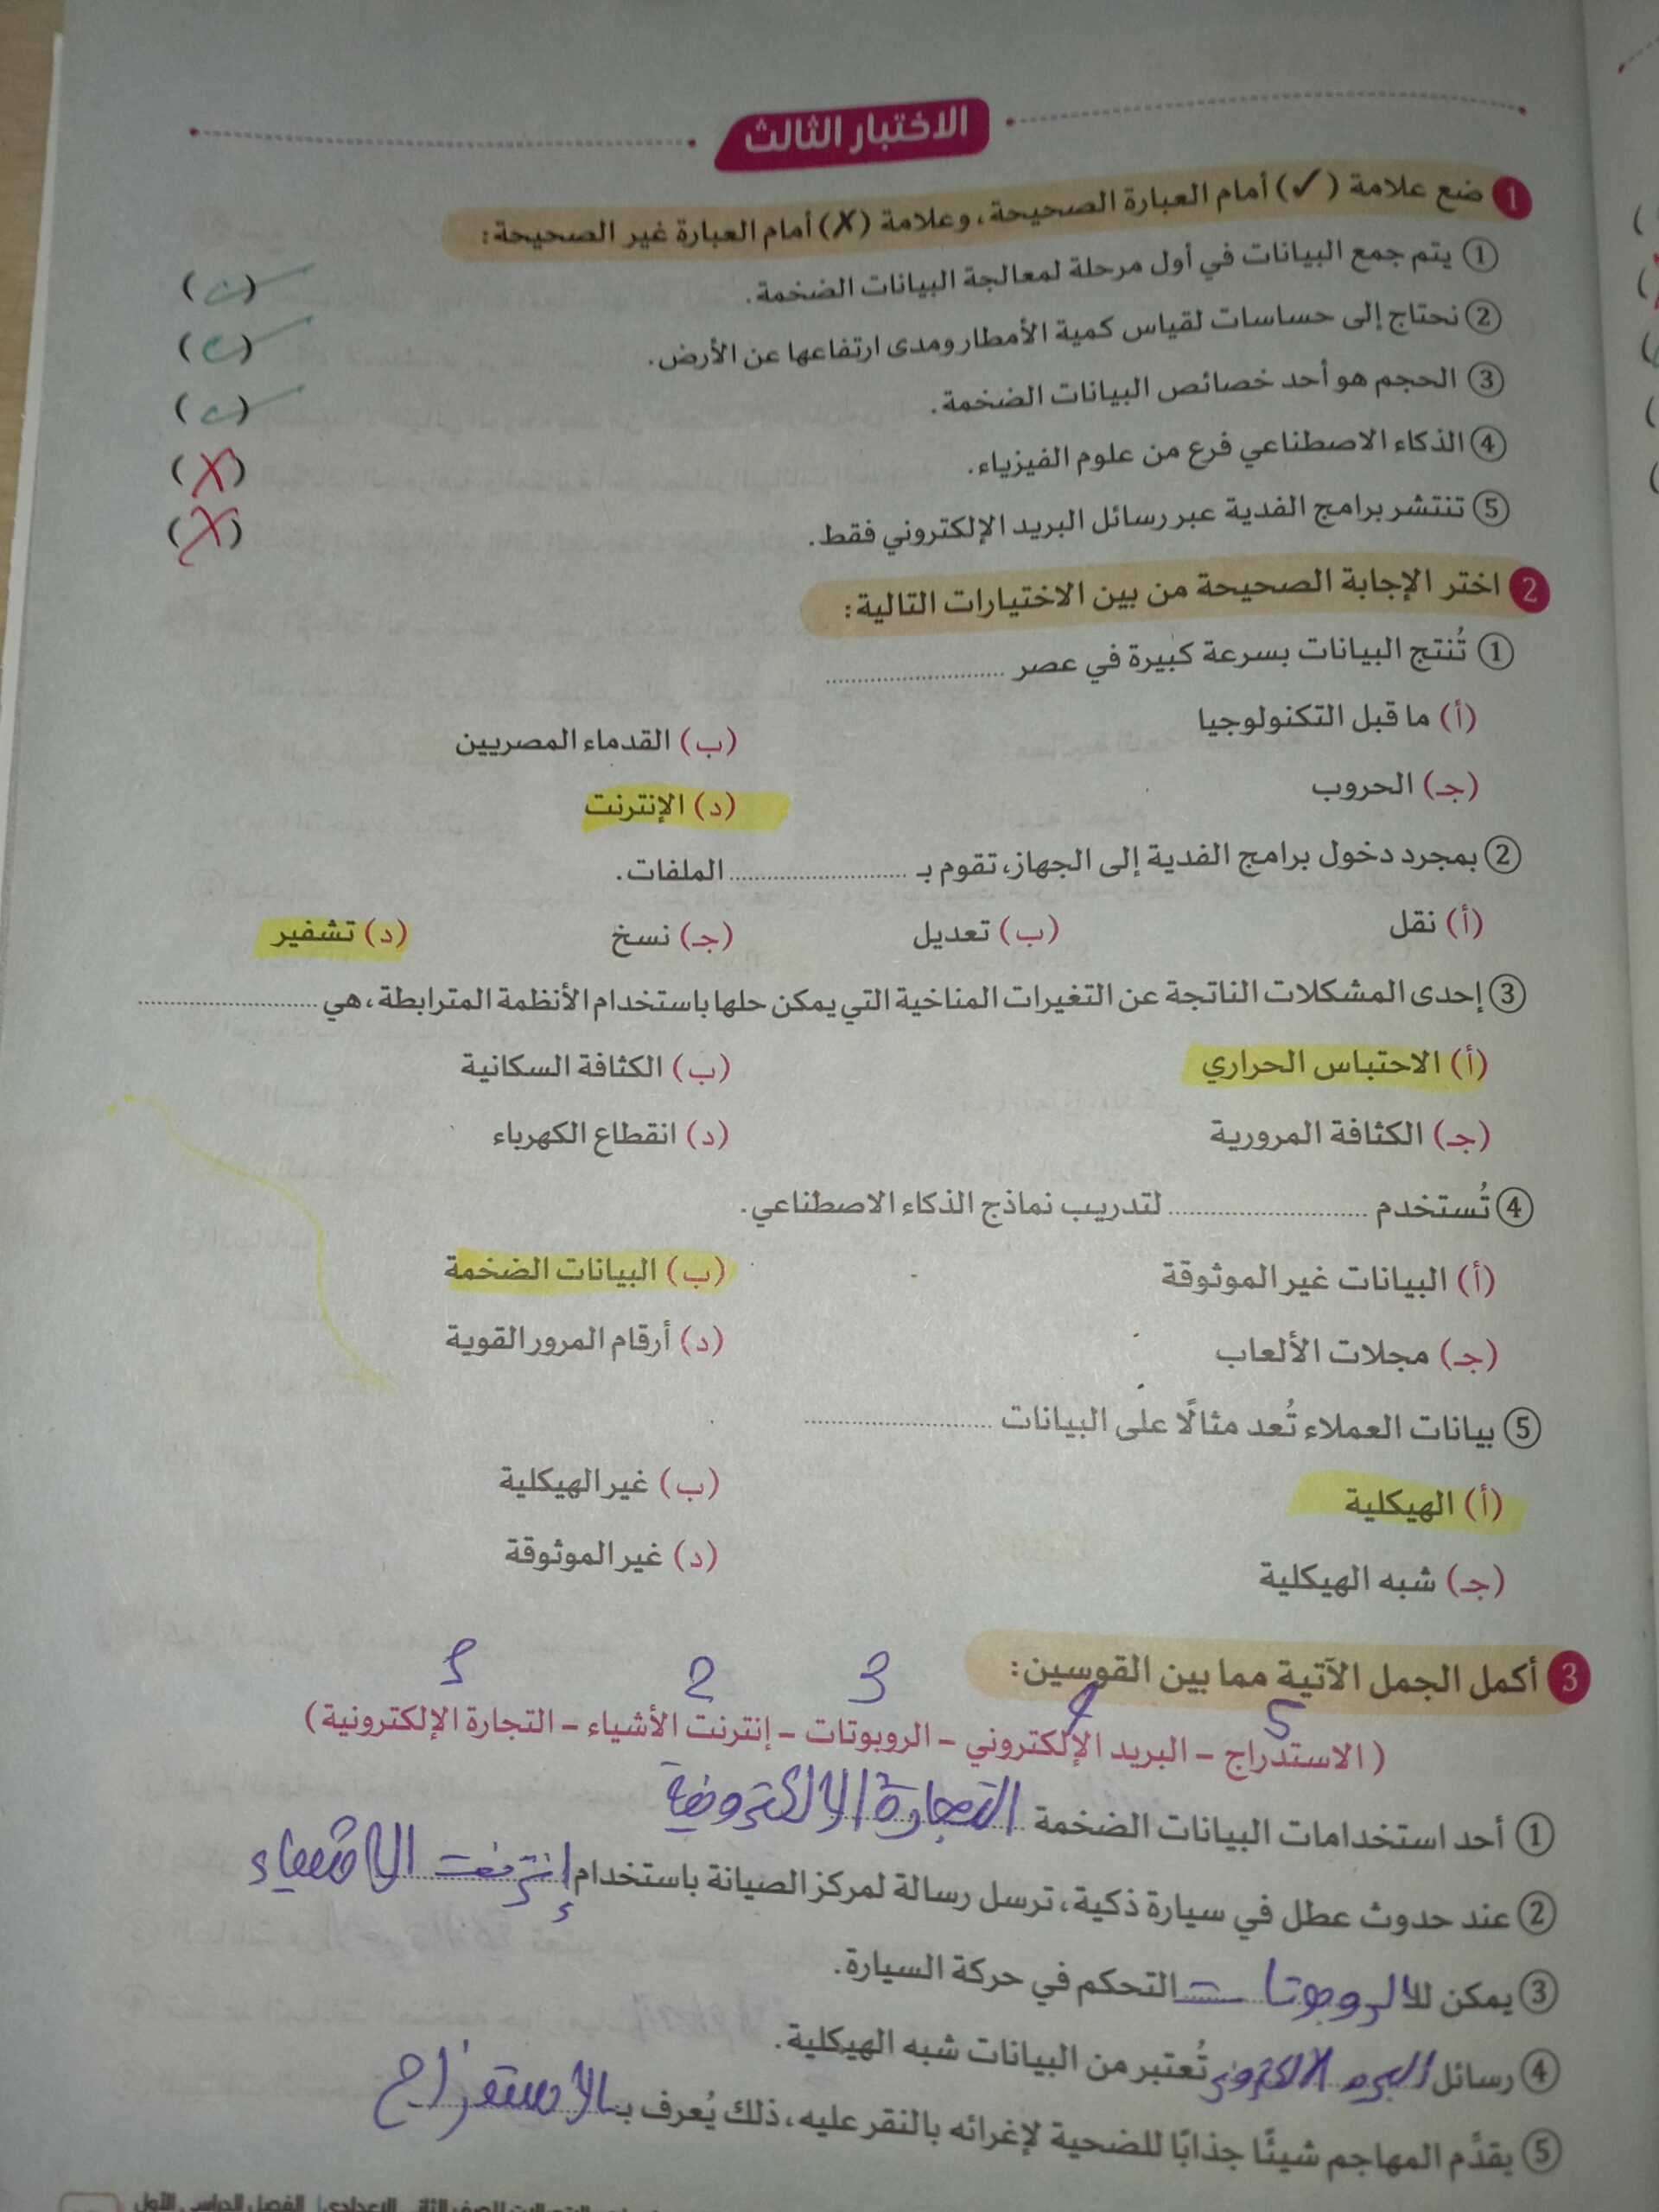 الاختبار الثالث
1 ضع علامة (✓) أمام العبارة الصحيحة، وعلامة (✗) أمام العبارة غير الصحيحة:
① يتم جمع البيانات في أول مرحلة لمعالجة البيانات الضخمة. (✓)
② نحتاج إلى حساسات لقياس كمية الأمطار ومدى ارتفاعها عن الأرض. (✓)
③ الحجم هو أحد خصائص البيانات الضخمة. (✓)
④ الذكاء الاصطناعي فرع من علوم الفيزياء. (X)
⑤ تنتشر برامج الفدية عبر رسائل البريد الإلكتروني فقط. (X)
2 اختر الإجابة الصحيحة من بين الاختيارات التالية:
① تُنتج البيانات بسرعة كبيرة في عصر ........................
(أ) ما قبل التكنولوجيا (ب) القدماء المصريين
(جـ) الحروب (د) الإنترنت
② بمجرد دخول برامج الفدية إلى الجهاز، تقوم بـ ........................ الملفات.
(أ) نقل (ب) تعديل (جـ) نسخ (د) تشفير
③ إحدى المشكلات الناتجة عن التغيرات المناخية التي يمكن حلها باستخدام الأنظمة المترابطة، هي ........................
(أ) الاحتباس الحراري (ب) الكثافة السكانية
(جـ) الكثافة المرورية (د) انقطاع الكهرباء
④ تُستخدم ........................ لتدريب نماذج الذكاء الاصطناعي.
(أ) البيانات غير الموثوقة (ب) البيانات الضخمة
(جـ) مجلات الألعاب (د) أرقام المرور القوية
⑤ بيانات العملاء تُعد مثالًا على البيانات ........................
(أ) الهيكلية (ب) غير الهيكلية
(جـ) شبه الهيكلية (د) غير الموثوقة
3 أكمل الجمل الآتية مما بين القوسين:
5 4 3 2 1
(الاستدراج - البريد الإلكتروني - الروبوتات - إنترنت الأشياء - التجارة الإلكترونية)
① أحد استخدامات البيانات الضخمة التجارة الالكترونية
② عند حدوث عطل في سيارة ذكية، ترسل رسالة لمركز الصيانة باستخدام إنترنت الاشياء
③ يمكن للالروبوتات التحكم في حركة السيارة.
④ رسائل البريد الالكتروني تُعتبر من البيانات شبه الهيكلية.
⑤ يقدِّم المهاجم شيئًا جذابًا للضحية لإغرائه بالنقر عليه، ذلك يُعرف بـ الاستدراج
للصف الثاني الإعدادي | الفصل الدراسي الأول